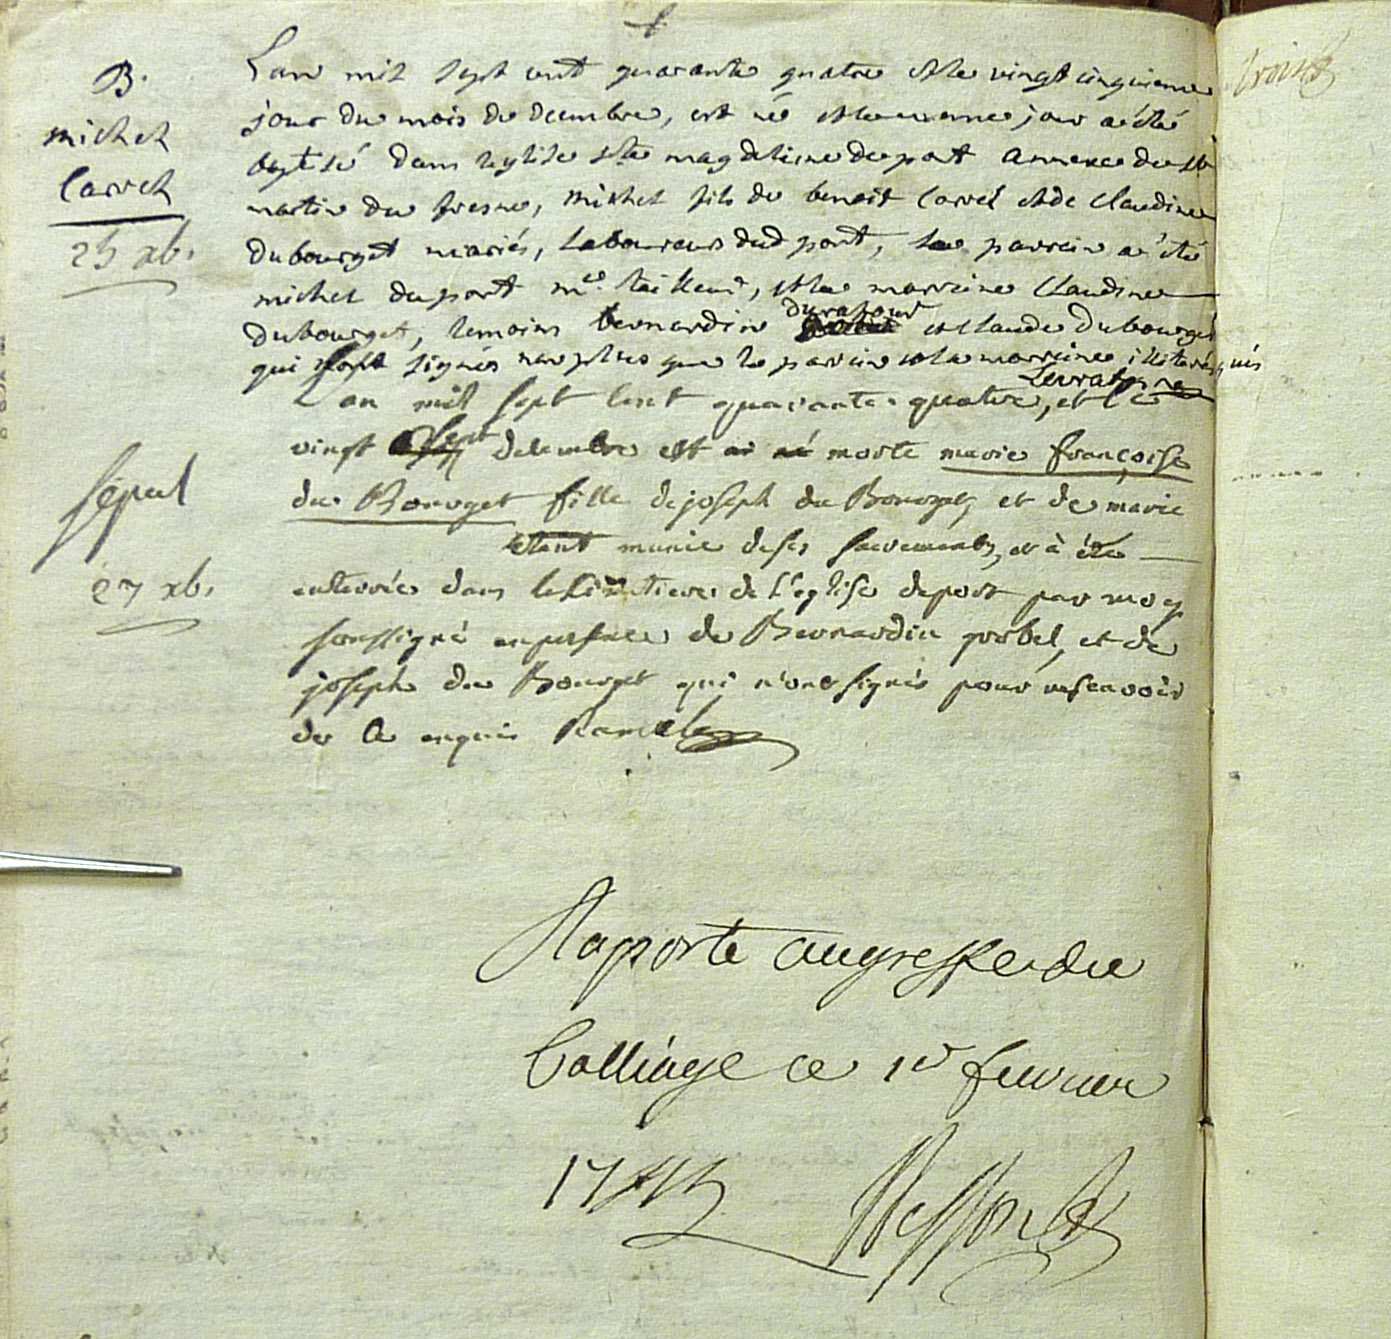 B.
michel
Carrel
25 xb.
L'an mil sept cent quarante quatre et le vingt cinquieme
jour du mois de decembre, est né et le mesme jour a été
baptisé dans l'eglise ste magdeleine de port annexe de st
martin du fresne, michel fils de benoit Carrel et de Claudine
dubourget mariés, laboureurs dud port, le parrein a été
michel duport me tailleur, et la marreine Claudine
dubourget, temoins bernardin duratour et claude dubourget
qui signés non plus que le parrein et la marreine illiterés
L'an mil sept cent quarante quatre, et le
Sepul
27 xb.
vingt sept decembre est morte marie françoise
du Bourget fille de joseph du Bourget, et de marie
etant munie de ses sacrements, et à été
enterrée dans le cimetiere de l'église de port par moy
soussigné en presence de Bernardin goobel, et de
joseph du Bourget qui n'ont signés pour ne scavoir
de ce enquis
Raporté au greffe du
Balliage ce 1er fevrier
1745